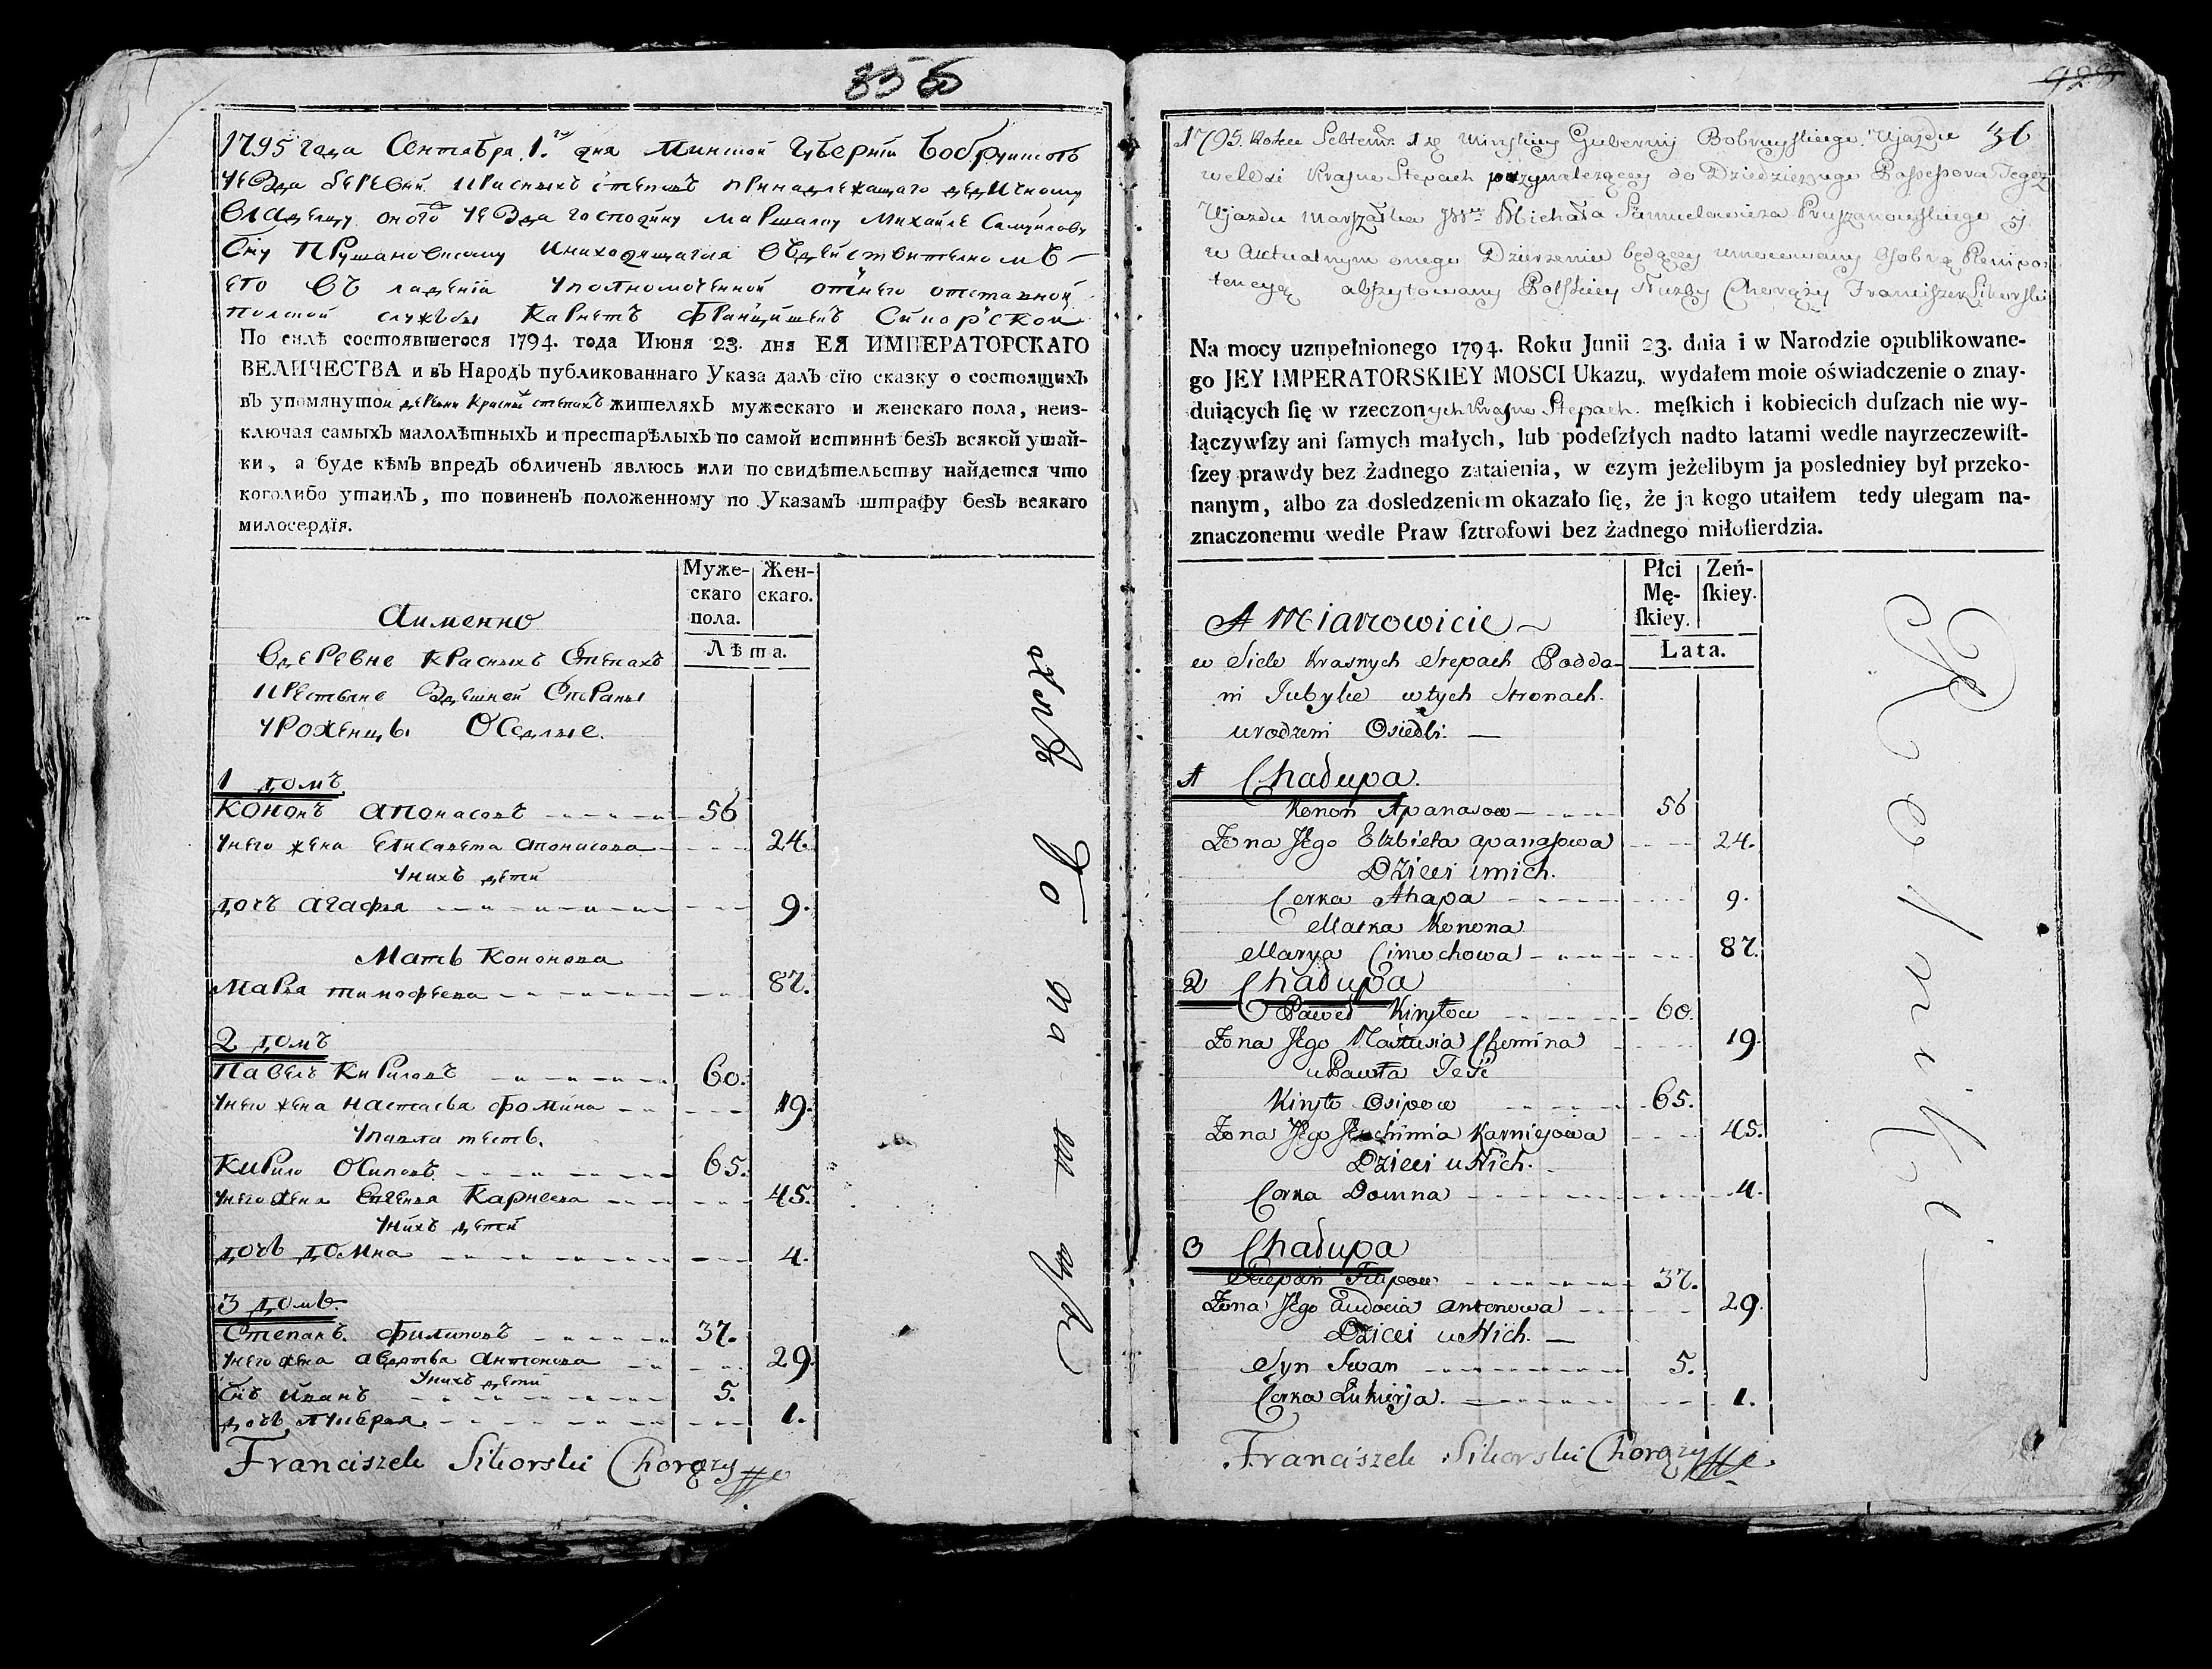 3556
1795 года Сентебря 1.го дня Минской Губерніи Бобруйскогъ
уезда деревни Красныхъ степовъ принадлежащаго дедичному
владельцу оного уезда господину маршалку Михайле Самуилову
сну Прушановскому инаходящагося вдействителномъ
его въ ладеніи уполномоченной отнего отставной
полской службы Карнетъ Францишекъ Сикорской
По силѣ состоявшегося 1794. года Июня 23. дня ЕЯ ИМПЕРАТОРСКАГО
ВЕЛИЧЕСТВА и въ Народъ публикованнаго Указа далъ сїю сказку о состоящихъ
въ упомянутой деревни Красныхъ степахъ жителяхъ мужескаго и женскаго пола, неиз-
ключая самыхъ малолѣтныхъ и престарѣлыхъ по самой истиннѣ безъ всякой утай-
ки, а буде кѣмъ впредь обличенъ явлюсь или по свидѣтельству найдется что
коголибо утаилъ, то повиненъ положенному по Указамъ штрафу безъ всякаго
милосердїя.
Муже-
скаго
пола.
Жен-
скаго.
Лѣта.
Аименно
Вдеревне Красныхъ Степахъ
крестьяне Здешней Стераны
уроженцы Оседлые.
1 домъ
Кононъ Апонасовъ 56
унего жена Елисавета Апонасова 24.
Унихъ дети
дочъ Агафья 9.
Мать Кононова
Маря тимофеева 87.
2 домъ
Павелъ Кириловъ 60.
унего жена Настасья Фомина 19.
Упавла тесть.
Кирило Осиповъ 65.
унего жена Евгения Карнеева 45.
Унихъ дети
дочь Домна 4.
3 домъ.
Степанъ. Филиповъ 37.
унего жена Авдотья Антонова 29.
Унихъ дети
Снъ Иванъ 5.
дочь Лукерья 1.
Franciszek Sikorski Chorąży
1795. Roku Sebtem. 1 go Minskiey Gubernij Bobruyskiego Ujazdu 36
we Wsi Krasne Stepach przynalezącey do Dziedzicznego Possesora Tegoz
Ujazdu Marszałka JW Michała Samuelowicza Pruszanowskiego y
w Aktualnym onego Dzierzeniu będącey umocowany Osobną Plenipo-
tencyą abszytowany Polskiey Służby Chorąży Franciszek Sikorski
Na mocy uzupełnionego 1794. Roku Junii 23. dnia i w Narodzie opublikowane-
go JEY IMPERATORSKIEY MOSCI Ukazu, wydałem moie oświadczenie o znay-
duiących ſię w rzeczonych Krasne Stepach. męſkich i kobiecich duſzach nie wy-
łączywſzy ani ſamych małych, lub podeſzłych nadto latami wedle nayrzeczewiſt-
ſzey prawdy bez żadnego zataienia, w czym jeżelibym ja posledniey był przeko-
nanym, albo za dosledzeniem okazało ſię, że ja kogo utaiłem tedy ulegam na-
znaczonemu wedle Praw ſztrofowi bez żadnego miłoſierdzia.
Płci
Mę-
ſkiey.
Zeń-
ſkiey.
Lata.
A Mianowicie
w Siele Krasnych Stepach Podda-
ni Jubylie wtych Stronach.
urodzeni Osiedli.
1 Chałupa.
Konon Apanasow 56
Zona Jego Elzbieta Apanasowa 24.
Dzieci unich.
Corka Ahapa 9.
Matka Konona
Marya Cimochowa 87.
2 Chałupa
Paweł Kiryłow 60.
Zona Jego Nastusia Chomina 19.
u Pawła Teść
Kiryło Osipow 65.
Zona Jego Jeuchimia Karniejowa 45.
Dzieci u Nich.
Corka Domna 4.
3 Chałupa
Sciepan Filipow 37.
Zona Jego Audocia Antonowa 29.
Dzieci u Nich.
Syn Iwan 5.
Corka Lukierja. 1.
Franciszek Sikorski Chorąży